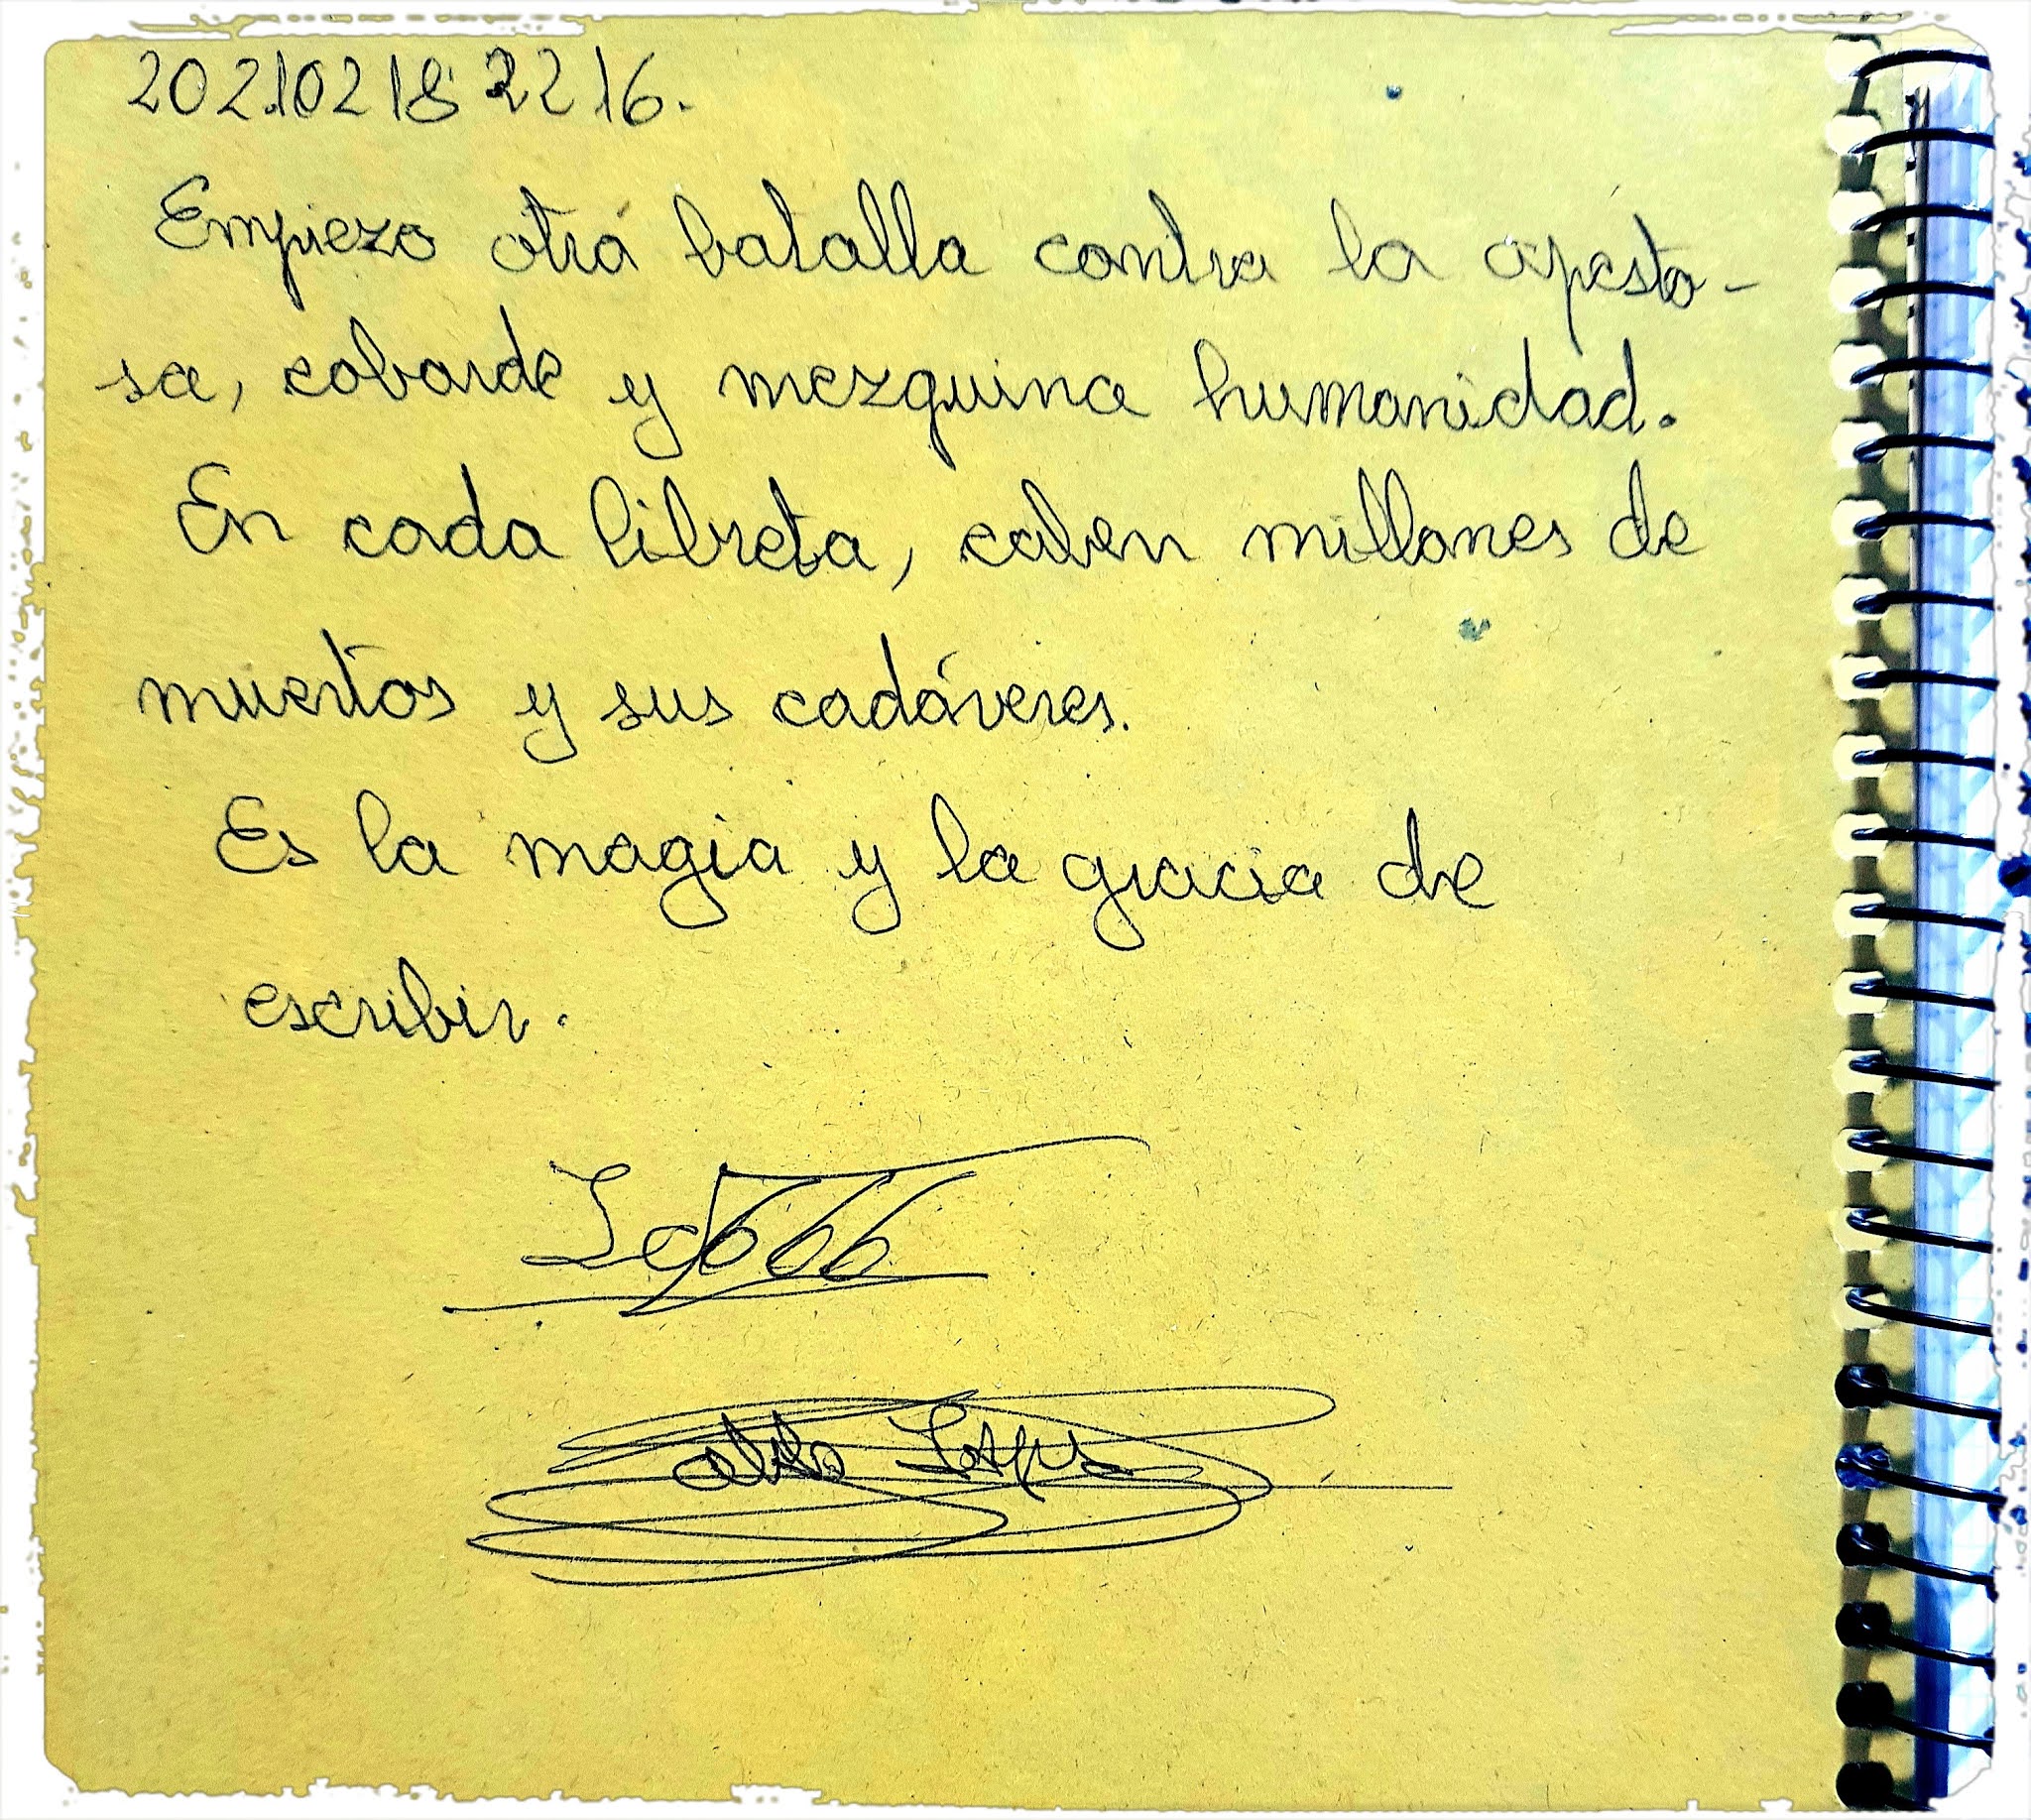 202102182216.
Empiezo otra batalla contra la apesto-
sa, cobarde y mezquina humanidad.
En cada libreta, caben millones de
muertos y sus cadáveres.
Es la magia y la gracia de
escribir.
666
López